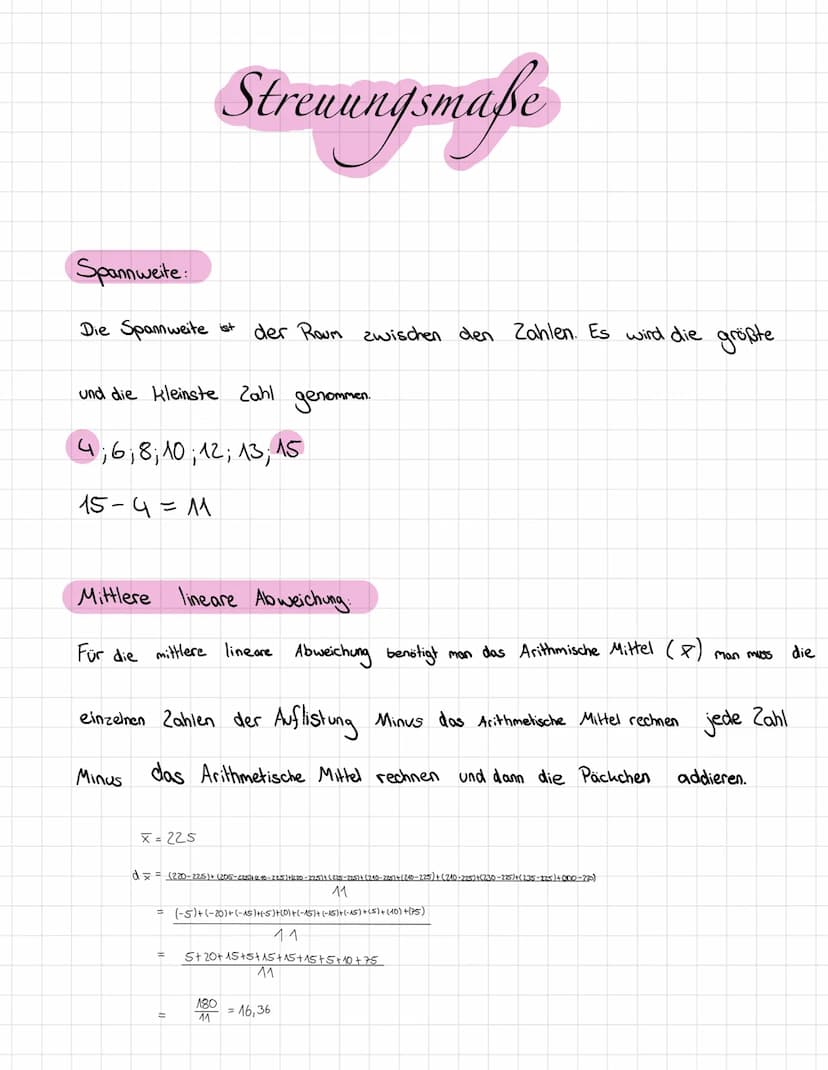 Streuungsmaße
Spannweite:
Die Spannweite ist der Raum zwischen den Zahlen. Es wird die größte
und die kleinste Zahl genommen.
4; 6; 8; 10; 12; 13; 15
15 - 4 = 11
Mittlere lineare Abweichung:
Für die mittlere lineare Abweichung benötigt man das Arithmische Mittel (x̅) man muss die
einzelnen Zahlen der Auflistung Minus das Arithmetische Mittel rechnen jede Zahl
Minus das Arithmetische Mittel rechnen und dann die Päckchen addieren.
x̅ = 225
d x̅ = (220-225)+(205-225)+
11
= (-5)+(-20)+(-15)+(-5)+(0)+(-15)+(-15)+(-15)+(5)+(10)+(75)
11
= 5+20+15+5+15+15+15+5+10+75
11
= 180
11 = 16,36